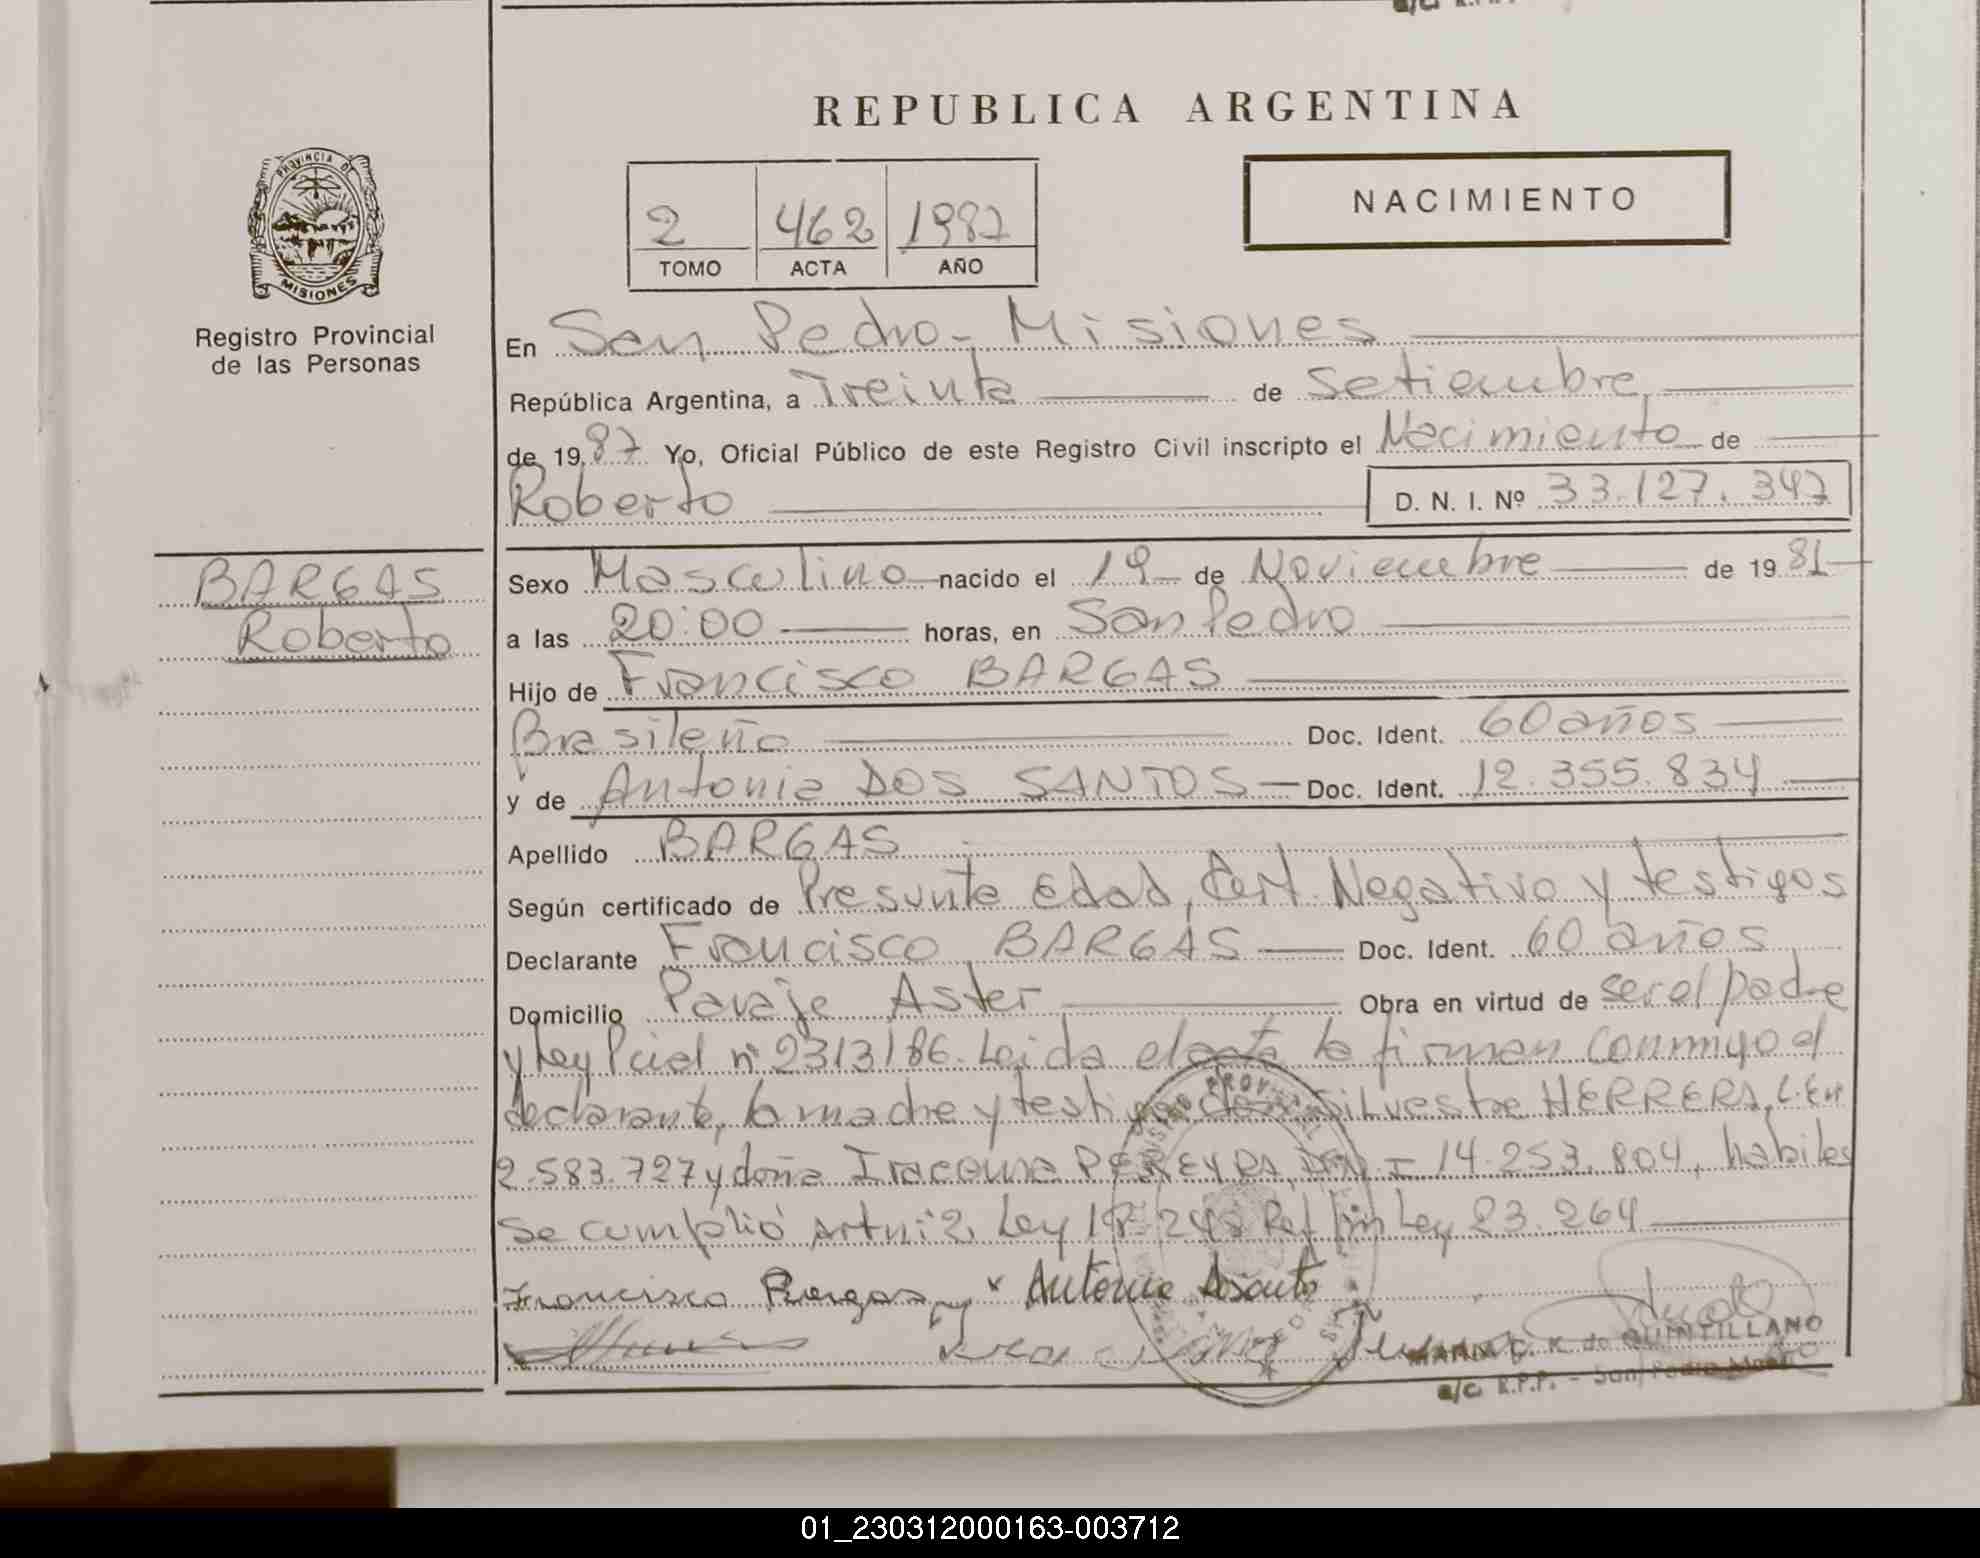 REPUBLICA ARGENTINA
PROVINCIA DE
MISIONES
Registro Provincial
de las Personas
2 462 1987
TOMO ACTA AÑO
NACIMIENTO
En San Pedro - Misiones
República Argentina, a Treinta de Setiembre
de 1987 Yo, Oficial Público de este Registro Civil inscripto el Nacimiento de
Roberto D. N. I. Nº 33.127.347
BARGAS
Roberto
Sexo Masculino nacido el 19 de Noviembre de 1981
a las 20:00 horas, en San Pedro
Hijo de Francisco BARGAS
Brasileño Doc. Ident. 60 años
y de Antonia DOS SANTOS Doc. Ident. 12.355.834
Apellido BARGAS
Según certificado de Presunta Edad, Cert. Negativo y testigos
Declarante Francisco BARGAS Doc. Ident. 60 años
Domicilio Paraje Aster Obra en virtud de ser el padre
y Ley Pcial nº 2313/86. Leida el acta la firman conmigo el
declarante, la madre y testigos don Silvestre HERRERA, L.E.nº
2.583.727 y doña Iracema PEREYRA, DNI 14.253.804, habiles
Se cumplió Art nº 2, Ley 18.248 Ref. Ley 23.264
Francisco Bargas Antonia
C. K. de QUINTILLANO
a/c. R.P.P. - San Pedro
01_230312000163-003712